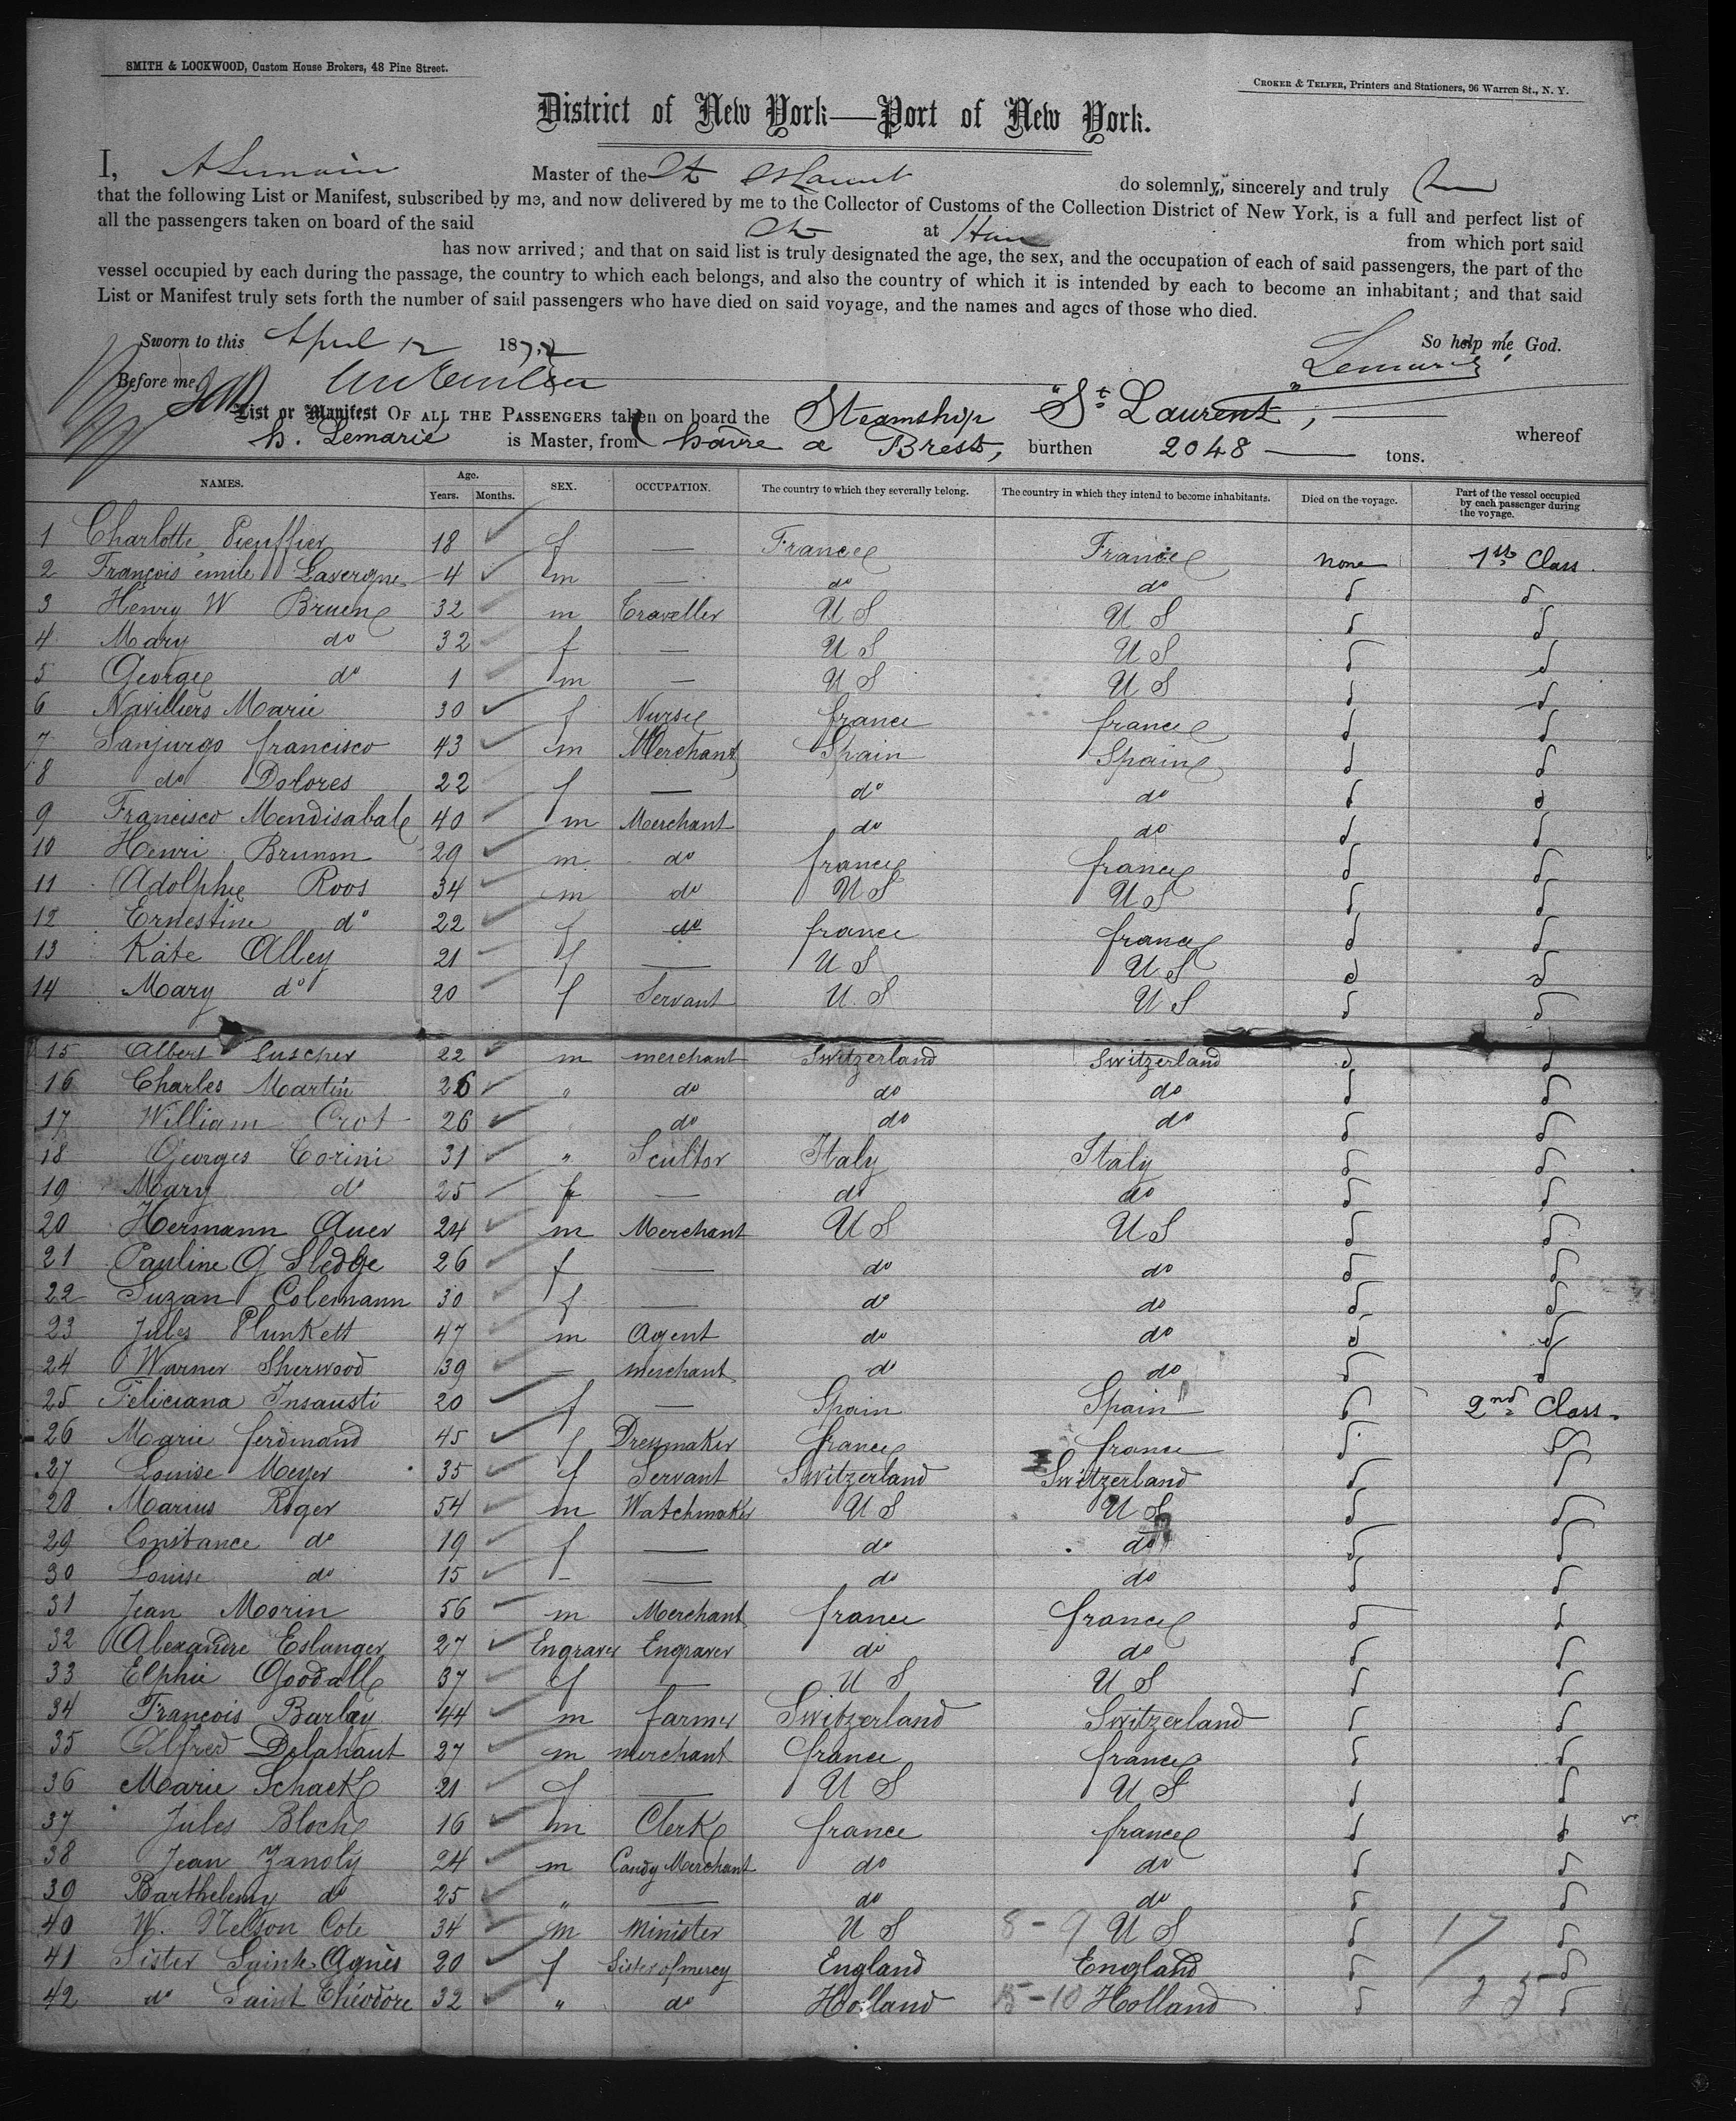 SMITH & LOCKWOOD, Custom House Brokers, 48 Pine Street.
CROKER & TELFER, Printers and Stationers, 96 Warren St., N. Y.
District of New York—Port of New York.
I, Master of the St Laurent do solemnly, sincerely and truly
that the following List or Manifest, subscribed by me, and now delivered by me to the Collector of Customs of the Collection District of New York, is a full and perfect list of
all the passengers taken on board of the said at from which port said
has now arrived; and that on said list is truly designated the age, the sex, and the occupation of each of said passengers, the part of the
vessel occupied by each during the passage, the country to which each belongs, and also the country of which it is intended by each to become an inhabitant; and that said
List or Manifest truly sets forth the number of said passengers who have died on said voyage, and the names and ages of those who died.
Sworn to this April 12 1872 So help me God.
Before me Lemarié
List or Manifest OF ALL THE PASSENGERS taken on board the Steamship St Laurent, whereof
h. Lemarie is Master, from havre a Brest, burthen 2048 tons.
NAMES. Age. Years. Months. SEX. OCCUPATION. The country to which they severally belong. The country in which they intend to become inhabitants. Died on the voyage. Part of the vessel occupied by each passenger during the voyage.
1 Charlotte 18 f — France France none 1st Class
2 François emile Lavergne 4 m — do do d d
3 Henry W Bruen 32 m Traveller U S U S d d
4 Mary do 32 f — U S U S d d
5 George do 1 m — U S U S d d
6 Navilliers Marie 30 f Nurse france france d d
7 Sanjurgo francisco 43 m Merchant Spain Spain d d
8 do Dolores 22 f — do do d d
9 Francisco Mendisabal 40 m Merchant do do d d
10 Henri Brunon 29 m do france france d d
11 Adolphe Roos 34 m do U S U S d d
12 Ernestine do 22 f do france france d d
13 Kate Alley 21 f — U S U S d d
14 Mary do 20 f Servant U. S U S d d
15 Albert Luscher 22 m merchant Switzerland Switzerland d d
16 Charles Martin 26 " do do do d d
17 William Crot 26 do do do d d
18 Georges Corini 31 " Scultor Italy Italy d d
19 Mary do 25 f — do do d d
20 Hermann Auer 24 m Merchant U S U S d d
21 Pauline G Sledge 26 f — do do d d
22 Suzan Colemann 30 f — do do d d
23 Jules Plunkett 47 m Agent do do d d
24 Warner Sherwood 39 — merchant do do d d
25 Feliciana Insausti 20 f — Spain Spain d 2nd Class.
26 Marie ferdinand 45 f Dressmaker france france d d
27 Louise Meyer 35 f Servant Switzerland Switzerland d d
28 Marius Roger 54 m Watchmaker U S U S d d
29 Constance do 19 f — do do d d
30 Louise do 15 — — do do d d
31 Jean Morin 56 m Merchant france france d d
32 Alexandre Eslanger 27 Engraver Engraver do do d d
33 Elphie Goodall 37 f — U S U S d d
34 François Barlay 44 m farmer Switzerland Switzerland d d
35 Alfred Delahaut 27 m merchant france france d d
36 Marie Schack 21 f — U S U S d d
37 Jules Bloch 16 m Clerk france france d d
38 Jean Zanoly 24 m Candy Merchant do do d d
39 Barthelemy do 25 " — do do d d
40 W. Nelson Cote 34 m minister U S 8-9 U S d 17 d
41 Sister Sainte Agnès 20 f Sister of mercy England England d d
42 do Saint Théodore 32 " do Holland 15-10 Holland d 25 d